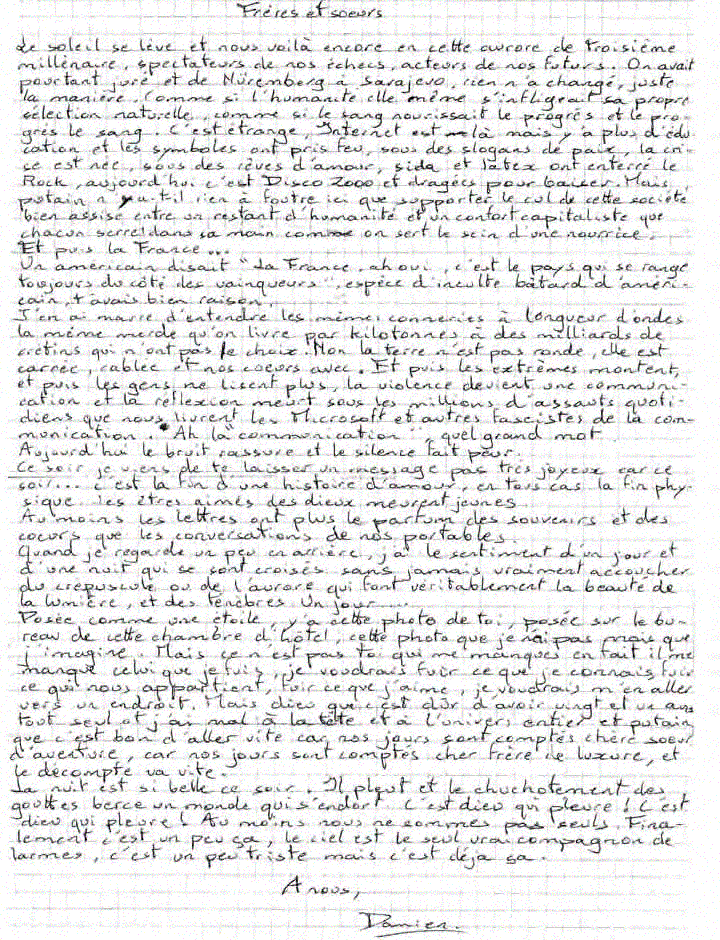 Frères et soeurs
Le soleil se lève et nous voilà encore en cette aurore de troisième
millénaire, spectateurs de nos échecs, acteurs de nos futurs. On avait
pourtant juré et de Nüremberg à Sarajevo, rien n'a changé, juste
la manière. Comme si l'humanité elle même s'infligeait sa propre
sélection naturelle, comme si le sang nourissait le progrès et le pro-
grès le sang. C'est étrange, Internet est là mais y'a plus d'édu-
cation et les symboles ont pris feu, sous des slogans de paix, la cri-
se est née, sous des rêves d'amour, sida et latex ont enterré le
Rock, aujourd'hui c'est Disco 2000 et dragées pour baiser. Mais,
putain n'y a-t-il rien à foutre ici que supporter le cul de cette société
bien assise entre un restant d'humanité et un confort capitaliste que
chacun serre dans sa main comme on sert le sein d'une nourrice.
Et puis la France...
Un américain disait "La France, ah oui, c'est le pays qui se range
toujours du côté des vainqueurs", espèce d'inculte bâtard d'améri-
cain, t'avais bien raison.
J'en ai marre d'entendre les mêmes conneries à longueur d'ondes
la même merde qu'on livre par kilotonnes à des milliards de
crétins qui n'ont pas le choix. Non la terre n'est pas ronde, elle est
carrée, cablée et nos coeurs avec. Et puis les extrêmes montent,
et puis les gens ne lisent plus, la violence devient une communi-
cation et la réflexion meurt sous les millions d'assauts quoti-
diens que nous livrent les Microsoft et autres fascistes de la com-
munication. Ah la "communication", quel grand mot
Aujourd'hui le bruit rassure et le silence fait peur.
Ce soir je viens de te laisser un message pas très joyeux car ce
soir... c'est la fin d'une histoire d'amour, en tous cas la fin phy-
sique. les êtres aimés des dieux meurent jeunes
Au moins les lettres ont plus le parfum des souvenirs et des
coeurs que les conversations de nos portables.
Quand je regarde un peu en arrière, j'ai le sentiment d'un jour et
d'une nuit qui se sont croisés sans jamais vraiment accoucher
du crépuscule ou de l'aurore qui font véritablement la beauté de
la lumière, et des ténèbres. Un jour.....
Posée comme une étoile, y'a cette photo de toi, posée sur le bu-
reau de cette chambre d'hôtel, cette photo que je n'ai pas mais que
j'imagine. Mais ce n'est pas toi qui me manques en fait il me
manque celui que je fuis, je voudrais fuir ce que je connais, fuir
ce qui nous appartient, fuir ce que j'aime, je voudrais m'en aller
vers un endroit. Mais dieu que c'est dûr d'avoir vingt et un ans
tout seul et j'ai mal à la tête et à l'univers entier et putain
que c'est bon d'aller vite car nos jours sont comptés chère soeur
d'aventure, car nos jours sont comptés cher frère de luxure, et
le décompte va vite.
La nuit est si belle ce soir. Il pleut et le chuchotement des
gouttes berce un monde qui s'endort. C'est dieu qui pleure! C'est
dieu qui pleure! Au moins nous ne sommes pas seuls. Fina-
lement c'est un peu ça, le ciel est le seul vrai compagnon de
larmes, c'est un peu triste mais c'est déja ça.
A nous,
Damien.